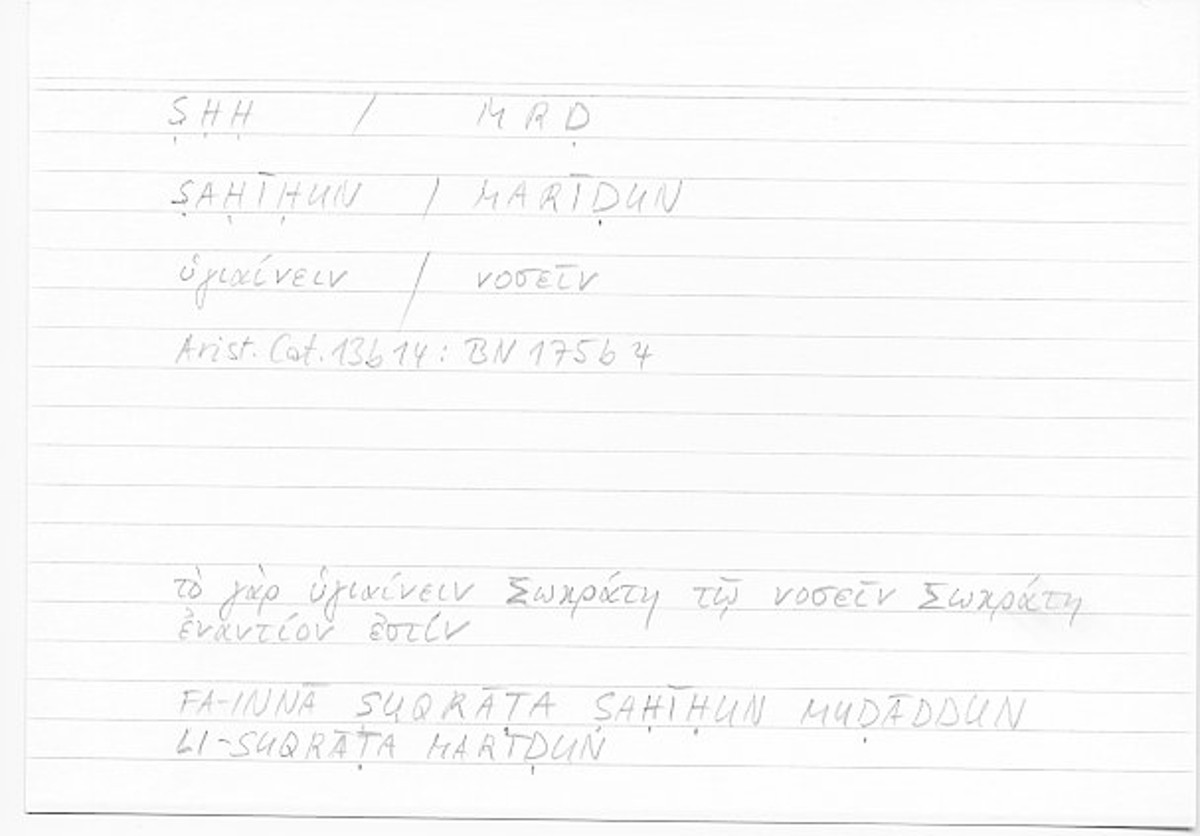 ṢḤḤ / MRḌ
ṢAḤĪḤUN / MARĪḌUN
ὑγιαίνειν / νοσεῖν
Arist. Cat. 13b14: BN 175b4
τὸ γὰρ ὑγιαίνειν Σωκράτη τῷ νοσεῖν Σωκράτη
ἐναντίον ἐστίν
FA-INNĀ SUQRĀṬA ṢAḤĪḤUN MUḌĀDDUN
LI-SUQRĀṬA MARĪḌUN